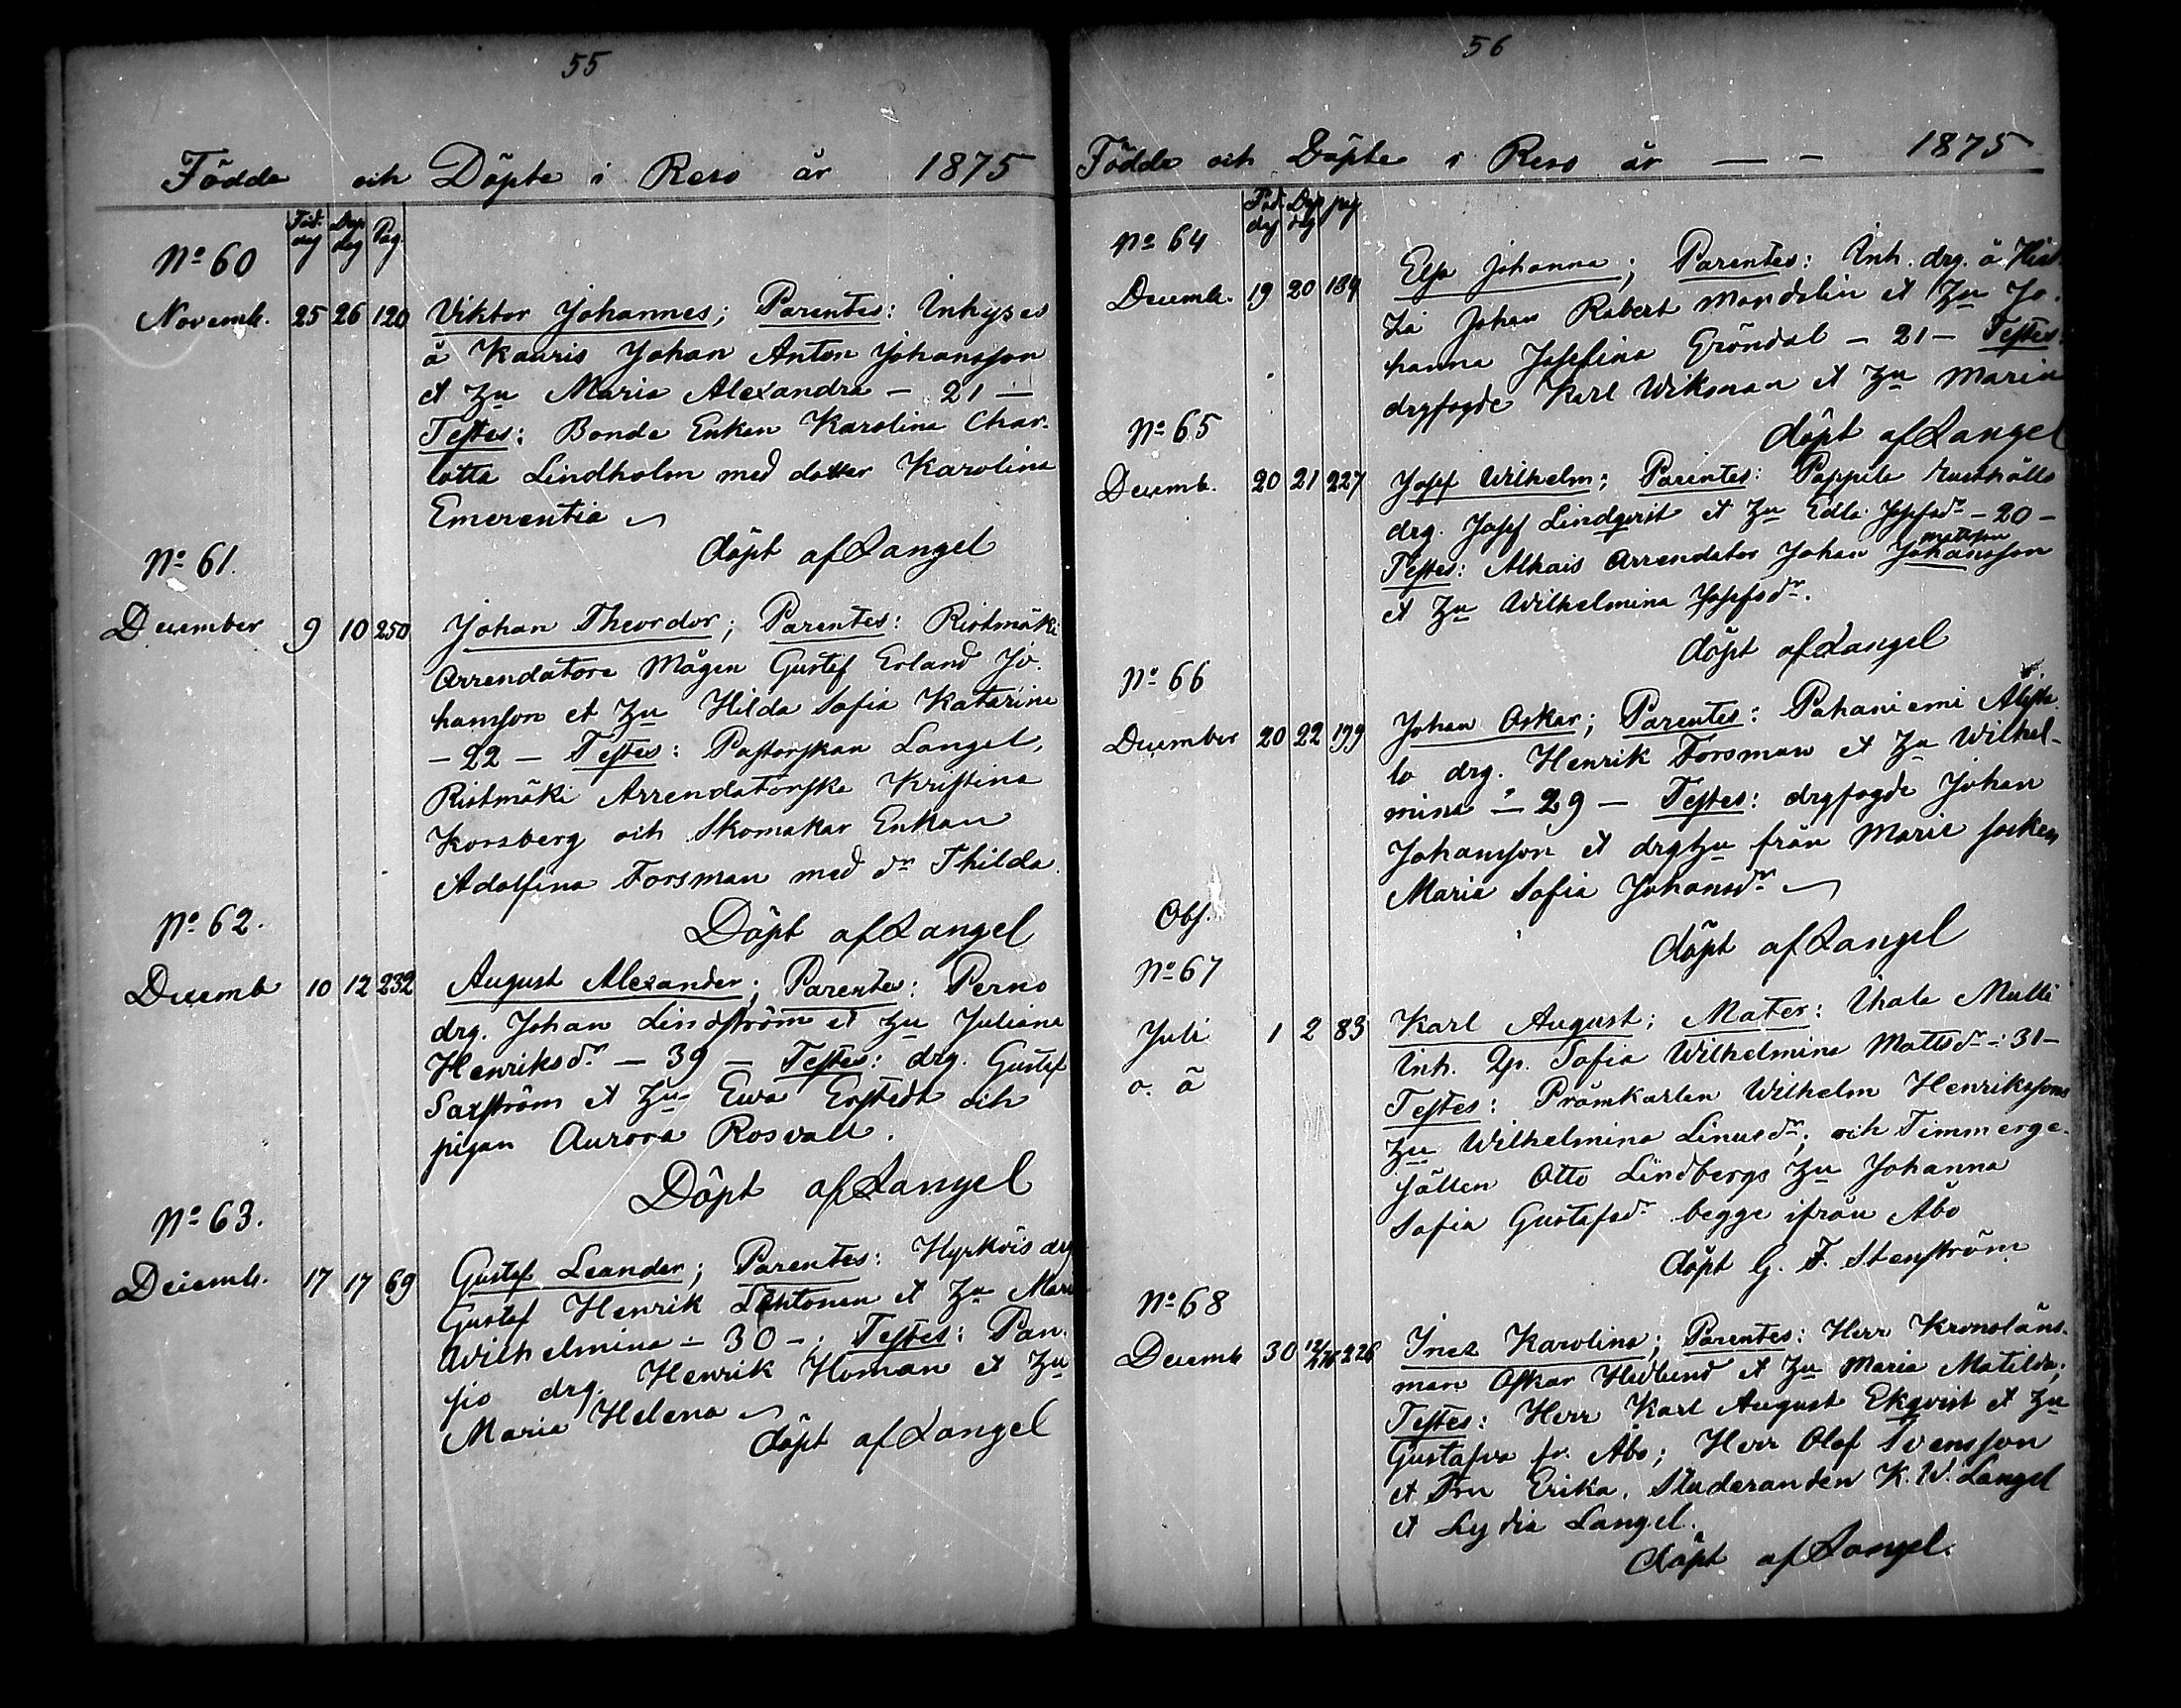 55
Födde och Döpte i Reso år 1875
Föd. dag Döp dag Pag.
No 60
Novemb. 25 26 120 Viktor Johannes; Parentes: Inhyses
å Kauris Johan Anton Johansson
et Hu Maria Alexandra - 21 -
Testes: Bonde Enkan Karolina Char-
lotta Lindholm med dotter Karolina
Emerentia
döpt af Langel
No 61.
December 9 10 250 Johan Theordor; Parentes: Ristmäki
Arrendatore Mågen Gustef Erland Jo-
hansson et Hu Hilda Sofia Katarina
- 22 - Testes: Pastorskan Langel,
Ristmäki Arrendatorska Kristina
Korsberg och Skomakar Enkan
Adolfina Forsman med dr Thilda.
Döpt af Langel
No 62.
Decemb 10 12 232 August Alexander; Parentes: Perno
drg. Johan Lindström et Hu Juliana
Henriksdr - 39 - Testes: drg. Gustaf
Saxström et Hu Ewa Erstedt och
pigan Aurora Rosvall.
Döpt af Langel
No 63.
Decemb. 17 17 69 Gustaf Leander; Parentes: Hyrköis drg
Gustaf Henrik Lehtonen et Hu Mari
Wilhelmina - 30 -; Testes: Pan-
sio drg. Henrik Homan et Hu
Maria Helena
döpt af Langel
56
Födde och Döpte i Reso år - - 1875
Föd. dag Döp dag pag
No 64
Decemb. 19 20 189 Elsa Johanna; Parentes: Inh. drg. å
Johan Robert Mandelin et Hu Jo-
hanna Josefina Gröndal - 21 - Testes:
drgfogde Karl Wiksman et Hu Maria
döpt af Langel
No 65
Decemb. 20 21 227 Josef Wilhelm; Parentes: Pappila Rusthålls
drg. Josef Lindqvist et Hu Edla Josefsdr - 20 -
mattsson
Testes: Alhais Arrendator Johan Johansson
et Hu Wilhelmina Josefsdr.
döpt af Langel
No 66
December 20 22 199 Johan Oskar; Parentes: Pahaniemi
lo drg. Henrik Forsman et Hu Wilhel-
mina - 29 - Testes: drgfogde Johan
Johansson et drghu från Marie socken
Maria Sofia Johansdr
döpt af Langel
Obs.
No 67
Juli 1 2 83 Karl August; Mater: Ihala Mulli
o. ä Inh. Qp. Sofia Wilhelmina Mattsdr - 31 -
Testes: Pråmkarlen Wilhelm Henrikssons
Hu Wilhelmina Linusdr; och Timmerge-
sällen Otto Lindbergs Hu Johanna
Sofia Gustafsdr begge ifrån Åbo
döpt G. F. Stenström
No 68
Decemb 30 12/1 76 226 Inez Karolina; Parentes: Herr Kronoläns-
man Oskar Hedlund et Hu Maria Matilda;
Testes: Herr Karl August Ekqvist et Hu
Gustafva fr. Åbo; Herr Olof Svensson
et Fru Erika, Studeranden K. W. Langel
et Lydia Langel.
döpt af Langel.